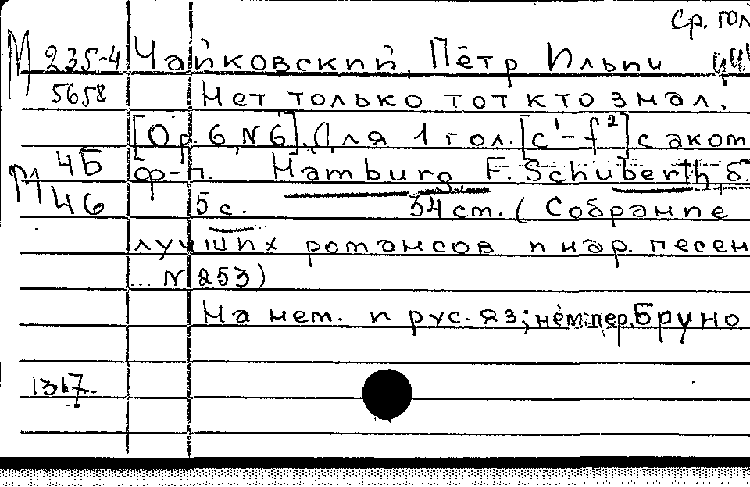 Ср. гол
М 235-4 Чайковский, Пётр Ильич
5658 Нет только тот кто знал.
[Op. 6, N 6]. Для 1 гол. [c¹-f²] с акот
М 4Б ф-п. Hamburg F. Schuberth б.
46 5 с. 34 cm. (Собрание
лучших романсов и нар. песен
... N 253)
На нем. и рус. яз; нем. пер. Бруно
1317.